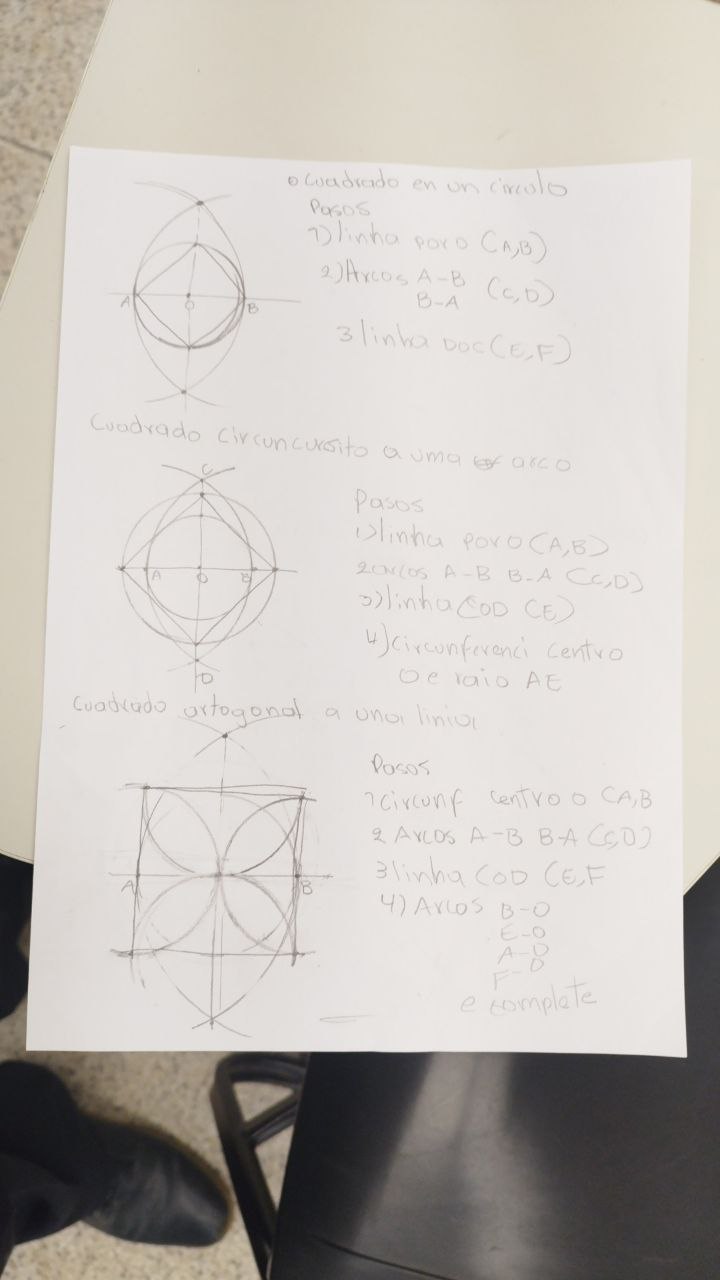 Cuadrado en un circulo
Pasos
1) linha poro (A,B)
2) Arcos A-B (C,D)
B-A
3 linha DOC (E,F)
A
O
B
Cuadrado circuncursito a uma arco
C
A
O
B
D
Pasos
1) linha poro (A,B)
2 arcos A-B B-A (C,D)
3) linha COD (E)
4) circunferenci centro
O e raio AE
Cuadrado artogonal a una linia
A
B
Pasos
1 circunf centro o (A,B
2 Arcos A-B B-A (C,D)
3 linha COD (E,F
4) Arcos B-O
E-O
A-O
F-O
e complete